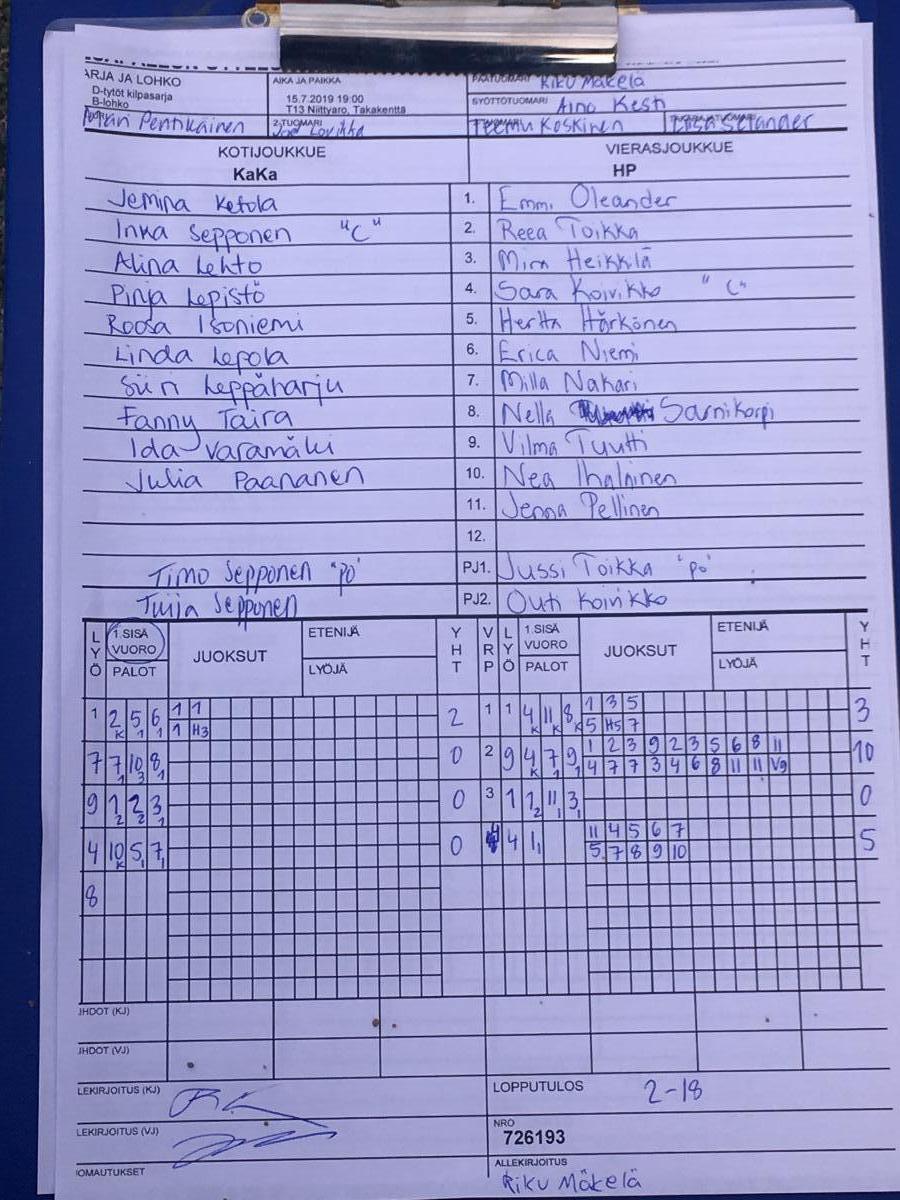 ARJA JA LOHKO AIKA JA PAIKKA PÄÄTUOMARI Riku Mäkelä
D-tytöt kilpasarja
B-lohko 15.7.2019 19:00 SYÖTTÖTUOMARI Aino Kesti
T13 Niittyaro, Takakenttä
Pentikäinen 2-TUOMARI Lovikka Teemu Koskinen Selander
KOTIJOUKKUE VIERASJOUKKUE
KaKa HP
Jemina Ketola 1. Emmi Oleander
Inka Sepponen "C" 2. Reea Toikka
Alina Lehto 3. Mira Heikkilä
Pinja Lepistö 4. Sara Koivikko "C"
Roosa Isoniemi 5. Hertta Härkönen
Linda Lepola 6. Erica Niemi
Siiri Leppäharju 7. Milla Nakari
Fanny Taira 8. Nella Sarnikorpi
Ida Varamäki 9. Vilma Tyutti
Julia Paananen 10. Nea Ihalainen
11. Jenna Pellinen
12.
Timo Sepponen "PO" PJ1. Jussi Toikka "PO"
Tuija Sepponen PJ2. Outi Koivikko
LYÖ 1.SISÄ VUORO PALOT JUOKSUT ETENIJÄ LYÖJÄ YHT VRP LYÖ 1.SISÄ VUORO PALOT JUOKSUT ETENIJÄ LYÖJÄ YHT
1 2K 51 61 1 1 2 1 1 4K 11K 8K 1 3 5 3
1 H3 5 H5 7
7 71 103 81 0 2 9 4K 71 91 1 2 3 9 2 3 5 6 8 11 10
4 7 7 3 4 6 8 11 11 V9
9 12 22 31 0 3 1 12 111 31 0
4 10K 51 71 0 4 4 11 11 4 5 6 7 5
5 7 8 9 10
8
JHDOT (KJ)
JHDOT (VJ)
LEKIRJOITUS (KJ) LOPPUTULOS 2-18
LEKIRJOITUS (VJ) NRO
726193
OMAUTUKSET ALLEKIRJOITUS
Riku Mäkelä